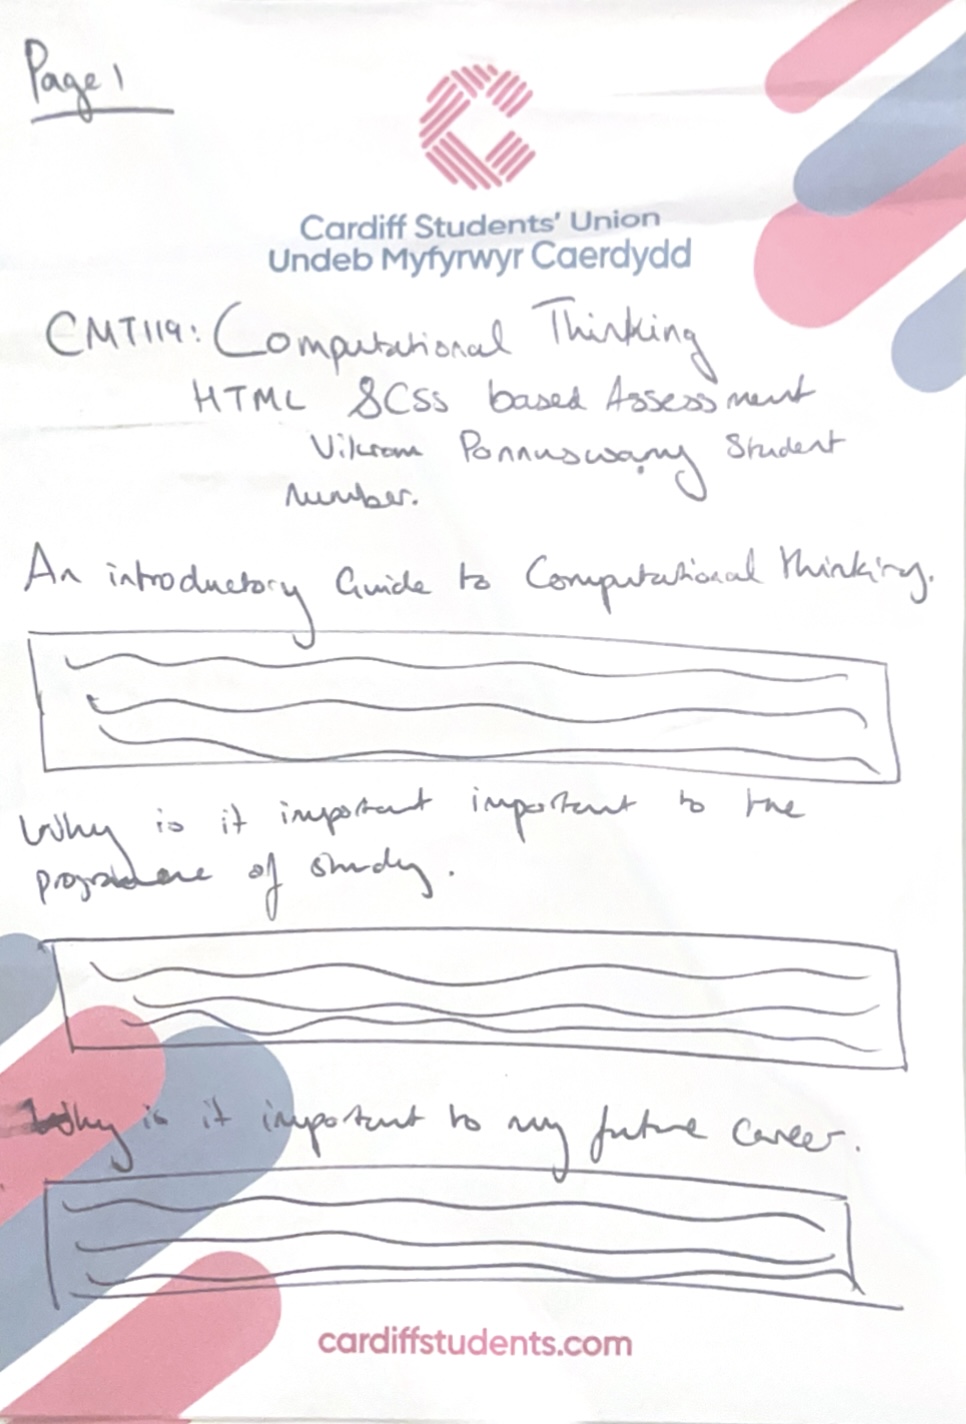 Page 1
Cardiff Students' Union
Undeb Myfyrwyr Caerdydd
CMT119: Computational Thinking
HTML &CSS based Assessment
Vikram Ponnuswamy Student
number.
An introductory Guide to Computational thinking.
Why is it important important to the
programme of study.
Why is it important to my future career.
cardiffstudents.com